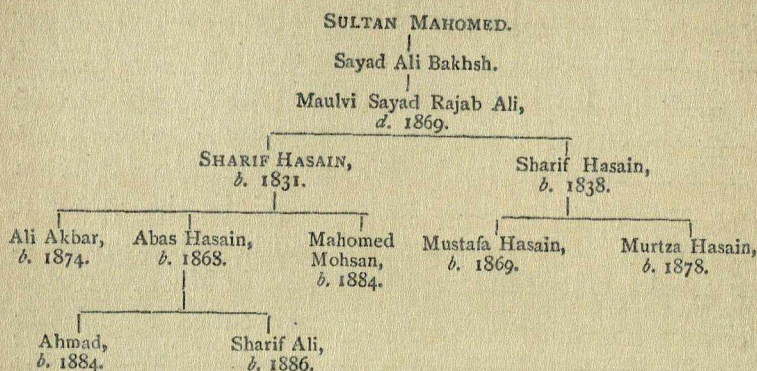 SULTAN MAHOMED.
Sayad Ali Bakhsh.
Maulvi Sayad Rajab Ali,
d. 1869.
SHARIF HASAIN,
b. 1831.
Sharif Hasain,
b. 1838.
Ali Akbar,
b. 1874.
Abas Hasain,
b. 1868.
Mahomed
Mohsan,
b. 1884.
Mustafa Hasain,
b. 1869.
Murtza Hasain,
b. 1878.
Ahmad,
b. 1884.
Sharif Ali,
b. 1886.